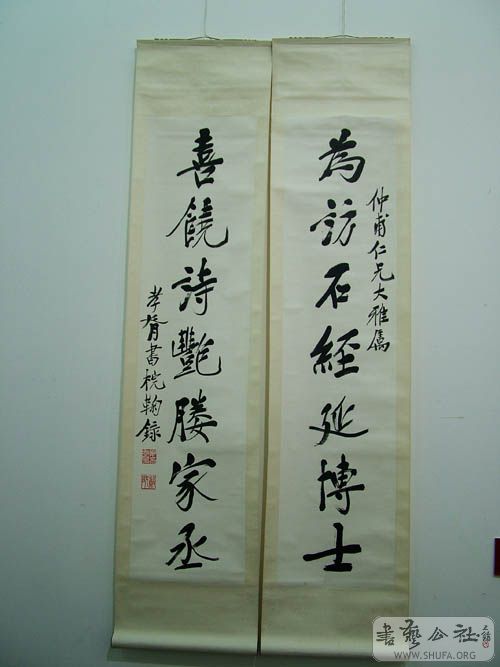 仲甫仁兄大雅屬
為訪石經延博士
喜饒詩艷媵家丞
孝胥書梡鞠錄
書藝公社
WWW.SHUFA.ORG